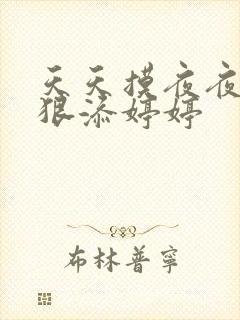 天天摸夜夜
狠添婷婷
布林普寧